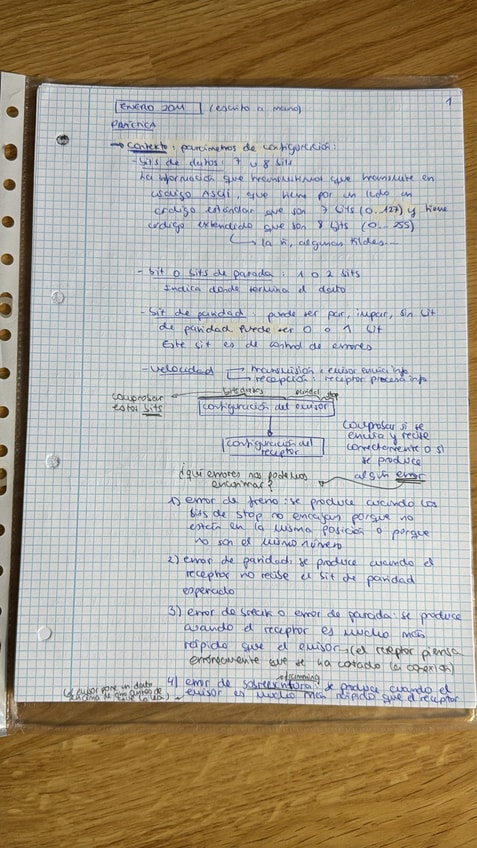 1
ENERO 2011 (escrito a mano)
PRÁCTICA
→ Contexto: parámetros de configuración:
- bits de datos: 7 u 8 bits
La información que transmitimos que transmite en
código ASCII, que tiene por un lado un
código estándar que son 7 bits (0...127) y tiene
código extendido que son 8 bits (0...255)
la ñ, algunas tildes...
- bit o bits de parada: 1 o 2 bits
Indica donde termina el dato
- bit de paridad: puede ser par, impar, sin bit
de paridad. Puede ser 0 o 1 bit
Este bit es de control de errores
- velocidad transmisión: emisor envía info
recepción: receptor procesa info
bits datos paridad stop
comprobar
estos bits
configuración del emisor
configuración del
receptor
comprobar si se
envía y recibe
correctamente o si
se produce
algún error
¿qué errores nos podemos
encontrar?
1) error de freno: se produce cuando los
bits de stop no encajan porque no
están en la misma posición o porque
no son el mismo número
2) error de paridad: se produce cuando el
receptor no recibe el bit de paridad
esperado
3) error de break o error de parada: se produce
cuando el receptor es mucho más
rápido que el emisor → (el receptor piensa
erróneamente que se ha cortado la conexión)
4) error de sobreescritura: se produce cuando el
emisor es mucho más rápido que el receptor
(el emisor pone un dato
encima de otro antes de